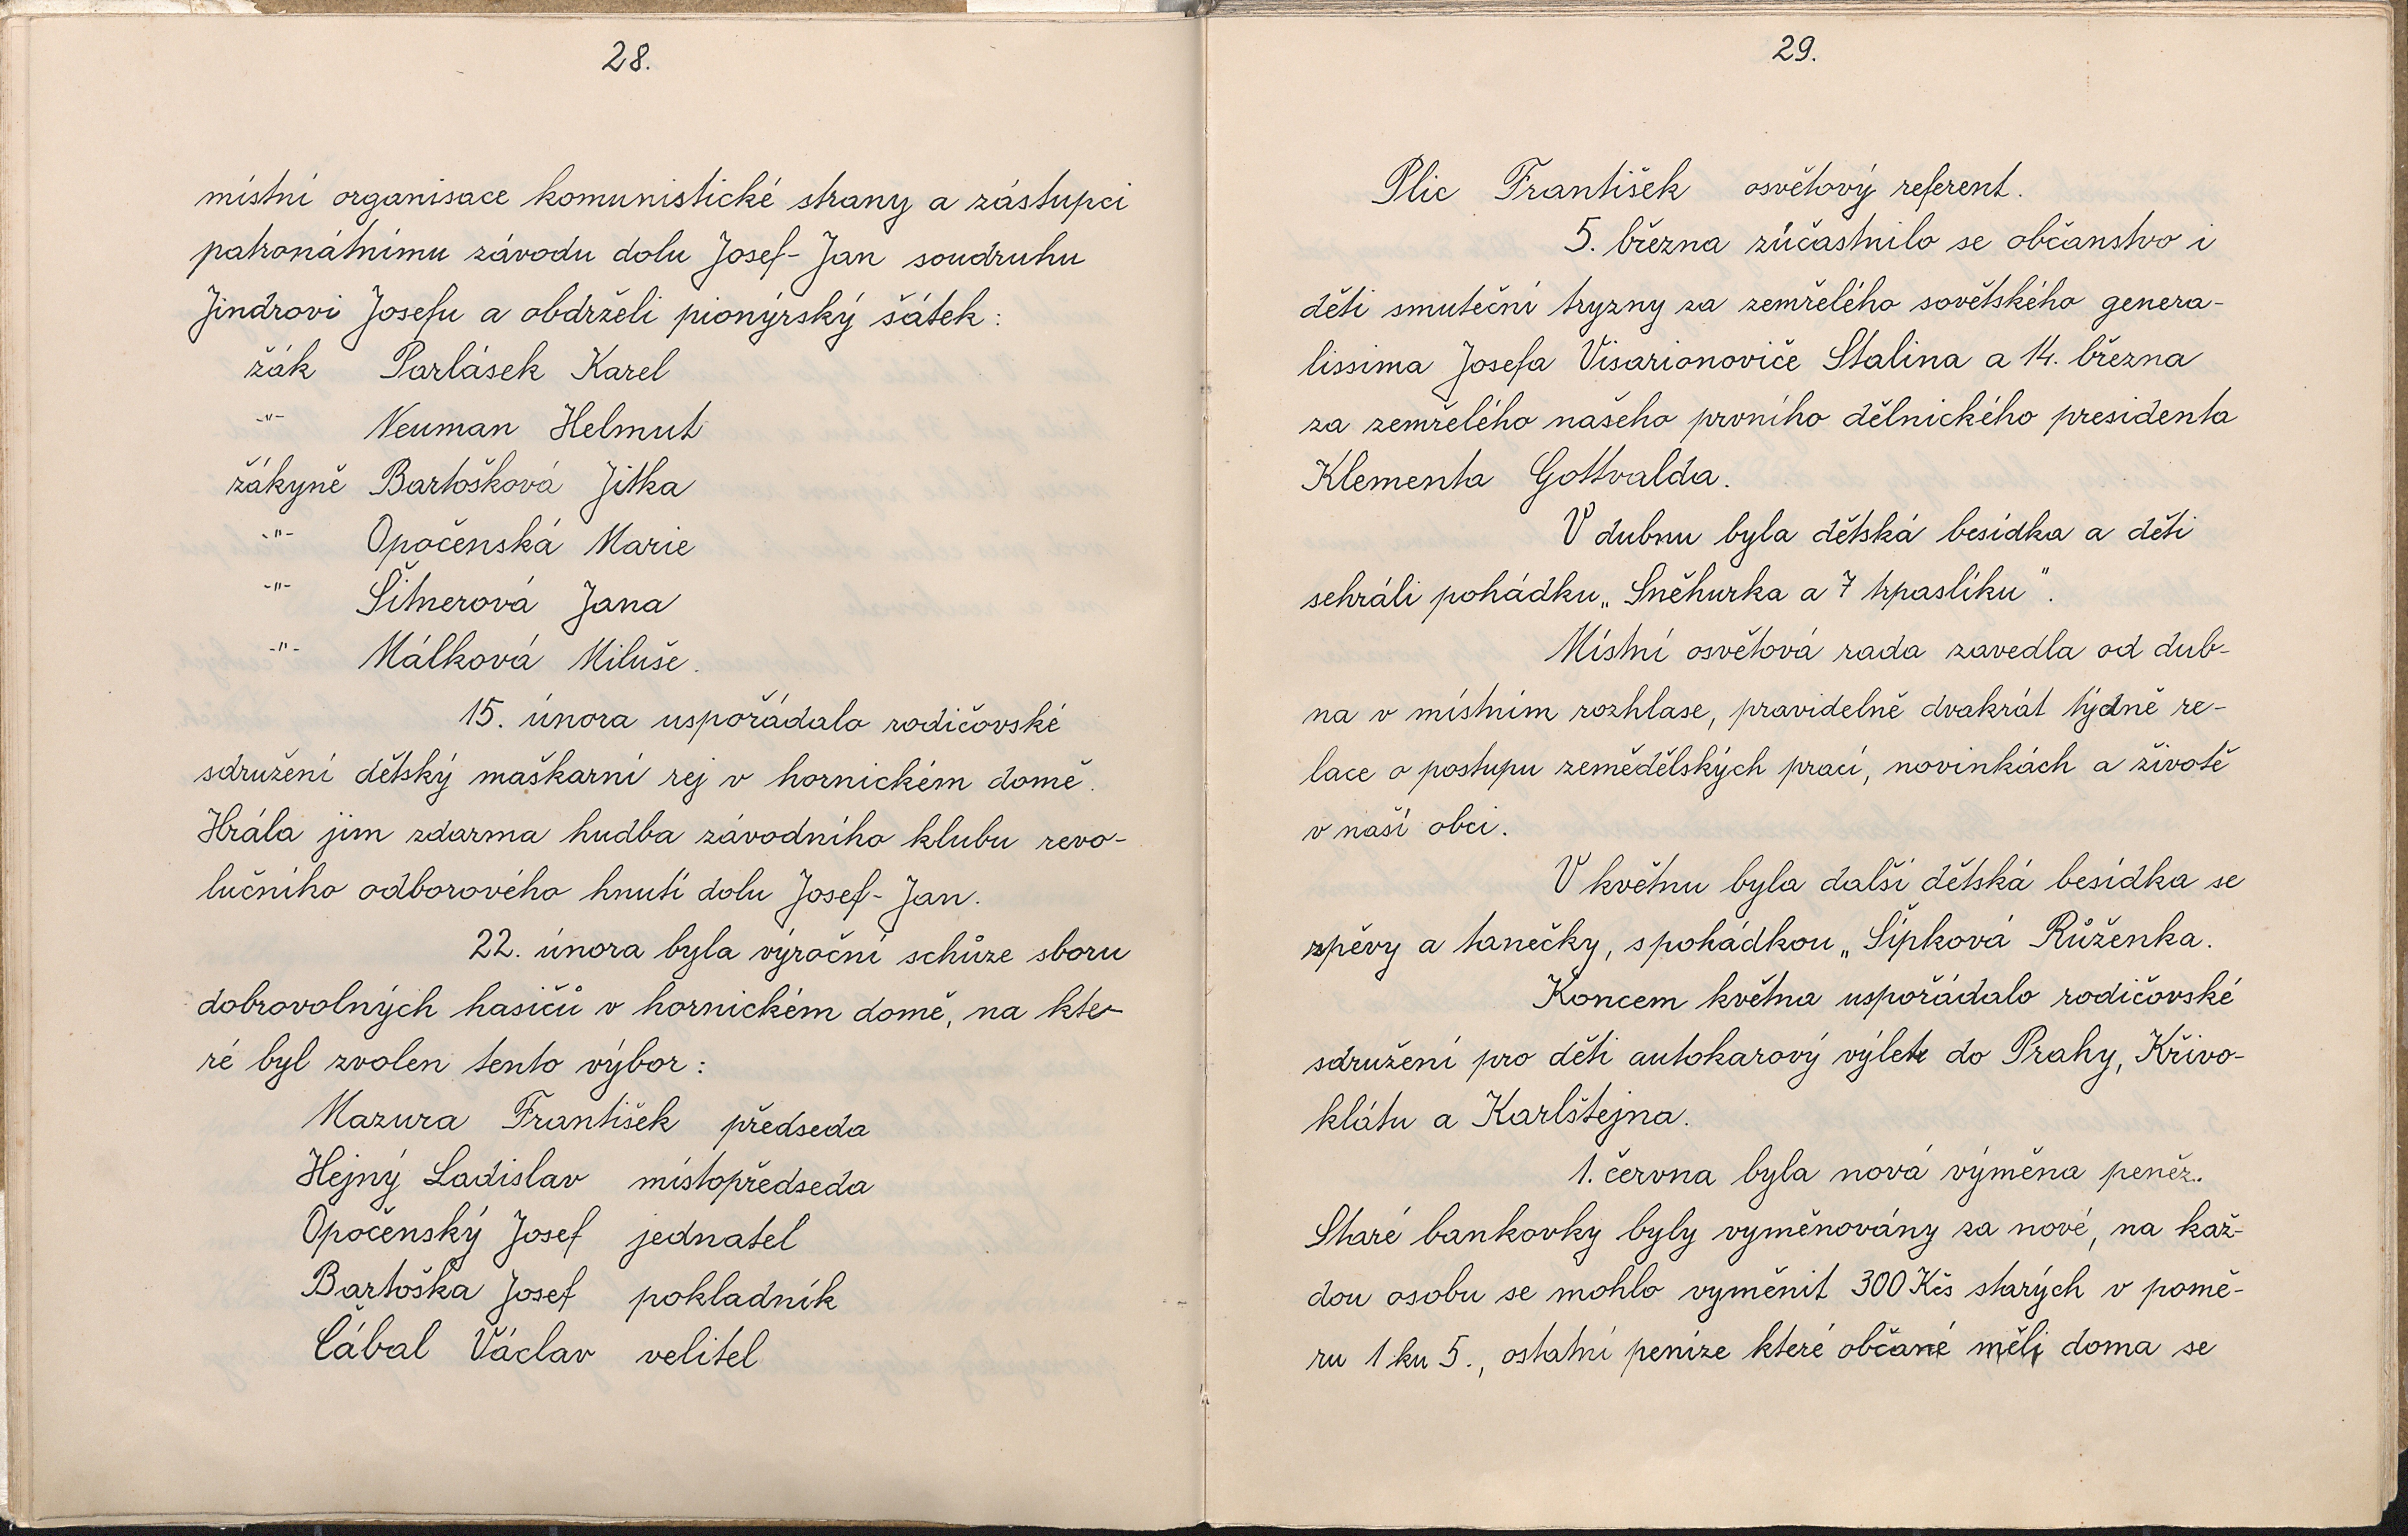 28.
místní organisace komunistické strany a zástupci
patronátnímu závodu dolu Josef-Jan soudruhu
Jindrovi Josefu a obdrželi pionýrský šátek:
žák Parlásek Karel
-"- Neuman Helmut
žákyně Bartošková Jitka
-"- Opočenská Marie
-"- Šitnerová Jana
-"- Málková Miluše.
15. února uspořádalo rodičovské
sdružení dětský maškarní rej v hornickém domě.
Hrála jim zdarma hudba závodního klubu revo-
lučního odborového hnutí dolu Josef-Jan.
22. února byla výroční schůze sboru
dobrovolných hasičů v hornickém domě, na kte-
ré byl zvolen tento výbor:
Mazura František předseda
Hejný Ladislav místopředseda
Opočenský Josef jednatel
Bartoška Josef pokladník
Cábal Václav velitel
29.
Plic František osvětový referent.
5. března zůčastnilo se občanstvo i
děti smuteční tryzny za zemřelého sovětského genera-
lissima Josefa Visarionoviče Stalina a 14. března
za zemřelého našeho prvního dělnického presidenta
Klementa Gottvalda.
V dubnu byla dětská besídka a děti
sehráli pohádku „Sněhurka a 7 trpaslíku".
Místní osvětová rada zavedla od dub-
na v místním rozhlase, pravidelně dvakrát týdně re-
lace o postupu zemědělských prací, novinkách a životě
v naší obci.
V květnu byla další dětská besídka se
zpěvy a tanečky, s pohádkou „Šípková Růženka.
Koncem května uspořádalo rodičovské
sdružení pro děti autokarový výlet do Prahy, Křivo-
klátu a Karlštejna.
1. června byla nová výměna peněz.
Staré bankovky byly vyměnovány za nové, na kaž-
dou osobu se mohlo vyměnit 300 Kčs starých v pomě-
ru 1 ku 5., ostatní peníze které občané měli doma se